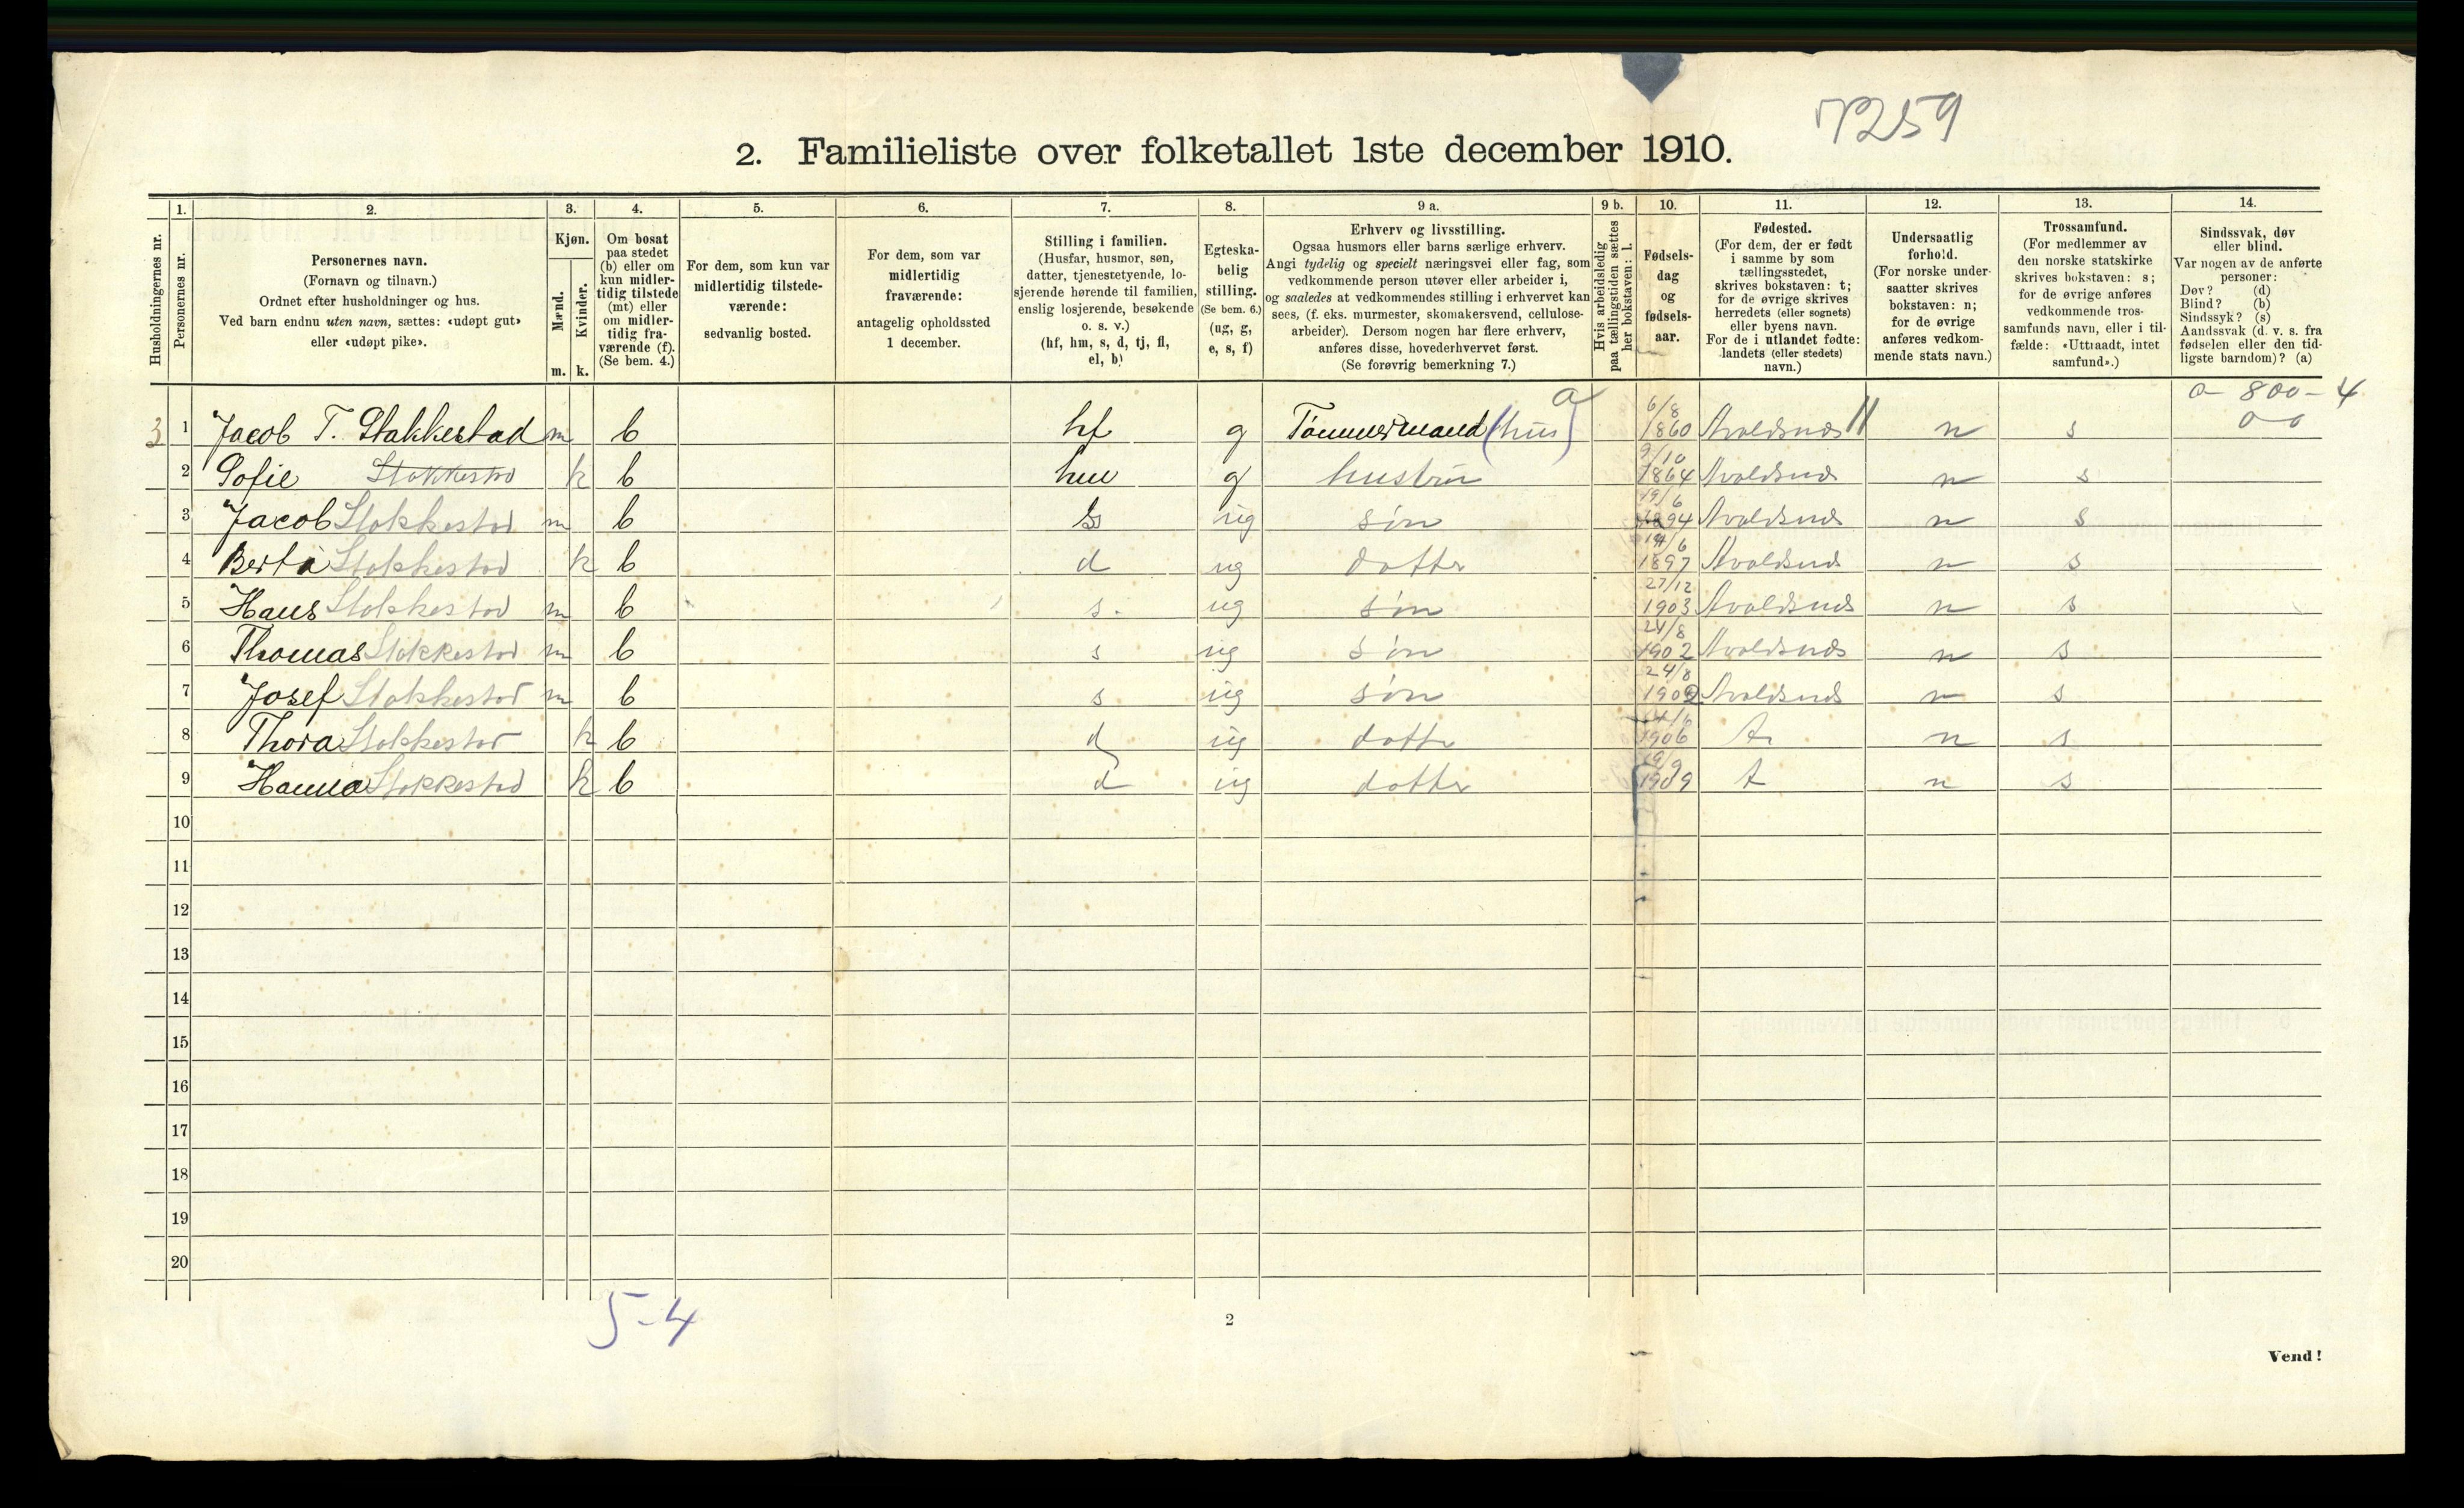 7259
2. Familieliste over folketallet 1ste december 1910.
1. 2. 3. 4. 5. 6. 7. 8. 9 a. 9 b. 10. 11. 12. 13. 14.
Husholdningernes nr.
Personernes nr.
Personernes navn.
(Fornavn og tilnavn.)
Ordnet efter husholdninger og hus.
Ved barn endnu uten navn, sættes: «udøpt gut»
eller «udøpt pike».
Kjøn.
Mænd.
Kvinder.
m. k.
Om bosat
paa stedet
(b) eller om
kun midler-
tidig tilstede
(mt) eller
om midler-
tidig fra-
værende (f).
(Se bem. 4.)
For dem, som kun var
midlertidig tilstede-
værende:
sedvanlig bosted.
For dem, som var
midlertidig
fraværende:
antagelig opholdssted
1 december.
Stilling i familien.
(Husfar, husmor, søn,
datter, tjenestetyende, lo-
sjerende hørende til familien,
enslig losjerende, besøkende
o. s. v.)
(hf, hm, s, d, tj, fl,
el, b)
Egteska-
belig
stilling.
(Se bem. 6.)
(ug, g,
e, s, f)
Erhverv og livsstilling.
Ogsaa husmors eller barns særlige erhverv.
Angi tydelig og specielt næringsvei eller fag, som
vedkommende person utøver eller arbeider i,
og saaledes at vedkommendes stilling i erhvervet kan
sees, (f. eks. murmester, skomakersvend, cellulose-
arbeider). Dersom nogen har flere erhverv,
anføres disse, hovederhvervet først.
(Se forøvrig bemerkning 7.)
Hvis arbeidsledig
paa tællingstiden sættes
her bokstaven: l.
Fødsels-
dag
og
fødsels-
aar.
Fødested.
(For dem, der er født
i samme by som
tællingsstedet,
skrives bokstaven: t;
for de øvrige skrives
herredets (eller sognets)
eller byens navn.
For de i utlandet fødte:
landets (eller stedets)
navn.)
Undersaatlig
forhold.
(For norske under-
saatter skrives
bokstaven: n;
for de øvrige
anføres vedkom-
mende stats navn.)
Trossamfund.
(For medlemmer av
den norske statskirke
skrives bokstaven: s;
for de øvrige anføres
vedkommende tros-
samfunds navn, eller i til-
fælde: «Uttraadt, intet
samfund».)
Sindssvak, døv
eller blind.
Var nogen av de anførte
personer:
Døv? (d)
Blind? (b)
Sindssyk? (s)
Aandssvak (d. v. s. fra
fødselen eller den tid-
ligste barndom)? (a)
a 6/8 0 - 800 - 4
3 1 Jacob T. Stakkestad m b hf g Tømmermand (hus) 1860 Avaldsnes n s 0 0
9/10
2 Sofie Stokkestad k b hm g hustru 1864 Avaldsnes n s
19/6
3 Jacob Stokkestad m b s ug søn 1894 Avaldsnes n s
14/6
4 Berta Stokkestad k b d ug datter 1897 Avaldsnes n s
27/12
5 Hans Stokkestad m b s. ug søn 1903 Avaldsnes n s
24/8
6 Thomas Stokkestad m b s ug søn 1902 Avaldsnes n s
24/8
7 Josef Stokkestad m b s ug søn 1902 Avaldsnes n s
8 Thora Stokkestad k b d ug datter 1906 A n s
9 Hanna Stokkestad k b d ug datter 1909 A n s
10
11
12
13
14
15
16
17
18
19
20
5-4
2
Vend!